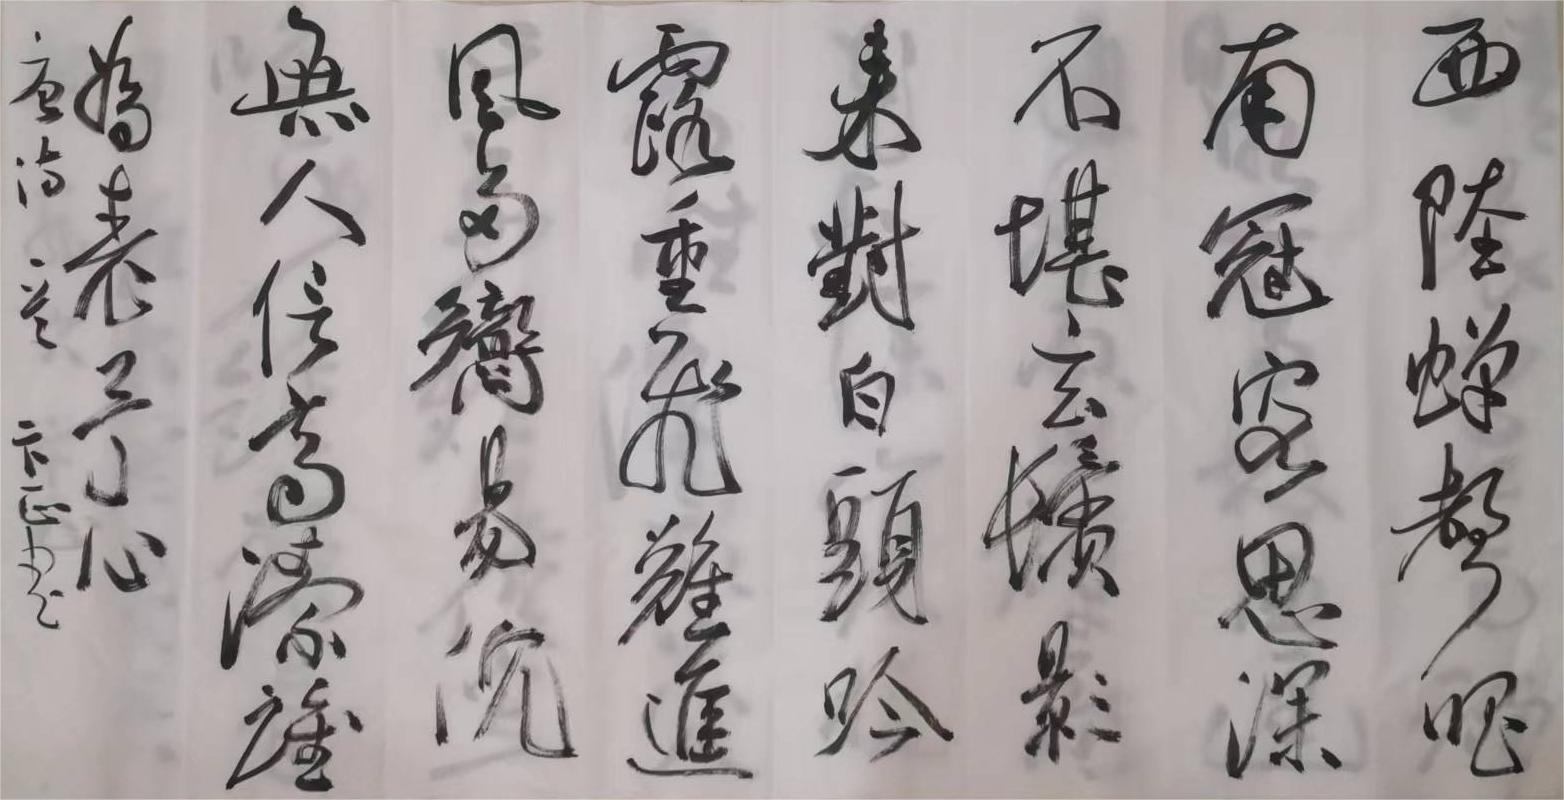 西陸蟬聲唱
南冠客思深
不堪玄鬢影
來對白頭吟
露重飛難進
風多響易沉
無人信高潔誰
為表予心
唐詩一首 卞正